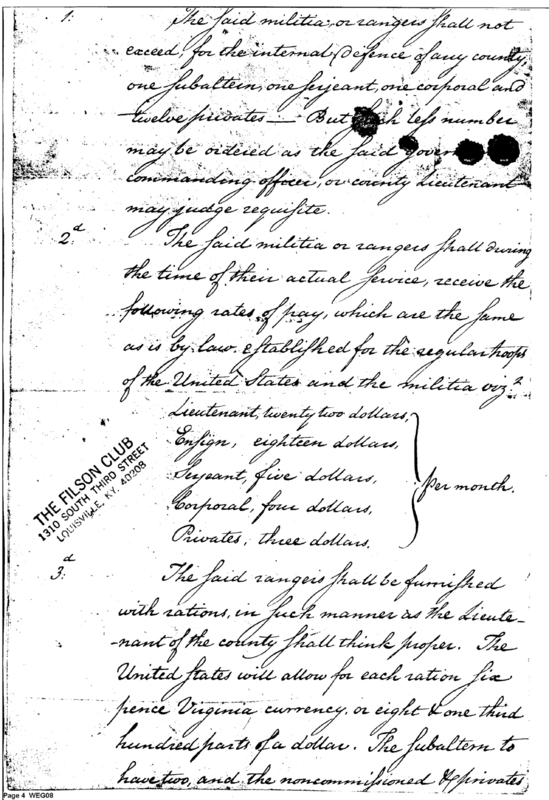 1.
The said militia or rangers shall not
exceed, for the internal defence of any county,
one subaltern, one serjeant, one corporal and
twelve privates — But such less number
may be ordered as the said
commanding officer, or county Lieutenant
may judge requisite.
2.d
The said militia or rangers shall during
the time of their actual service, receive the
following rates of pay, which are the same
as is by law established for the regular troops
of the United States and the militia viz.t
Lieutenant, twenty two dollars,
Ensign, eighteen dollars,
Serjeant, five dollars,
Corporal, four dollars,
Privates, three dollars.
per month.
THE FILSON CLUB
1310 SOUTH THIRD STREET
LOUISVILLE, KY. 40208
3.d
The said rangers shall be furnished
with rations, in such manner as the Lieute-
-nant of the county shall think proper. The
United States will allow for each ration six
pence Virginia currency, or eight & one third
hundred parts of a dollar. The subaltern to
have two, and the noncommissioned & privates
Page 4 WEG08